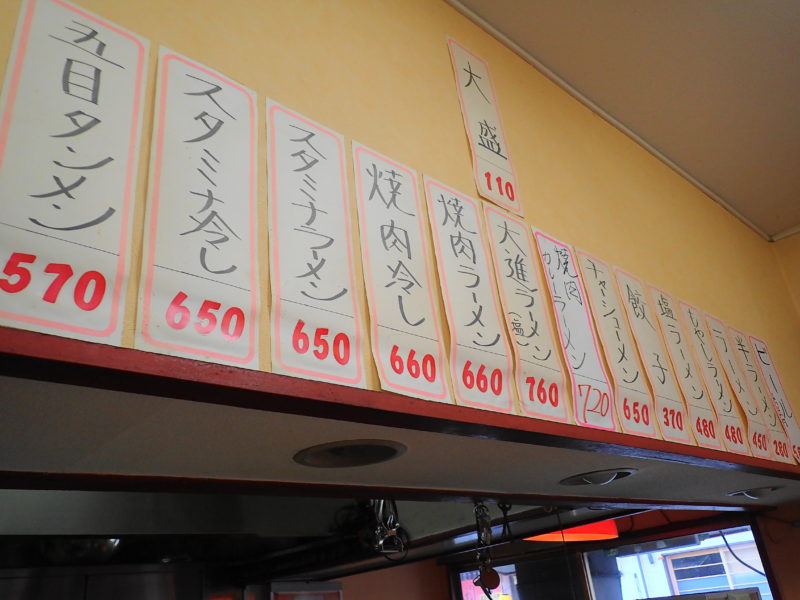 大盛
110
五目タンメン
570
スタミナ冷し
650
スタミナラーメン
650
焼肉冷し
660
焼肉ラーメン
660
大進ラーメン
(塩)
760
焼肉
カレーラーメン
720
チャシューメン
650
餃子
370
塩ラーメン
480
もやしラーメン
480
ラーメン
450
半ラーメン
280
ビール